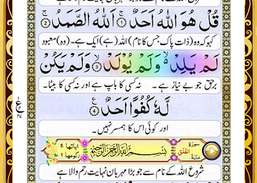 قُلْ هُوَ اللّٰهُ اَحَدٌ ۚ اَللّٰهُ الصَّمَدُ ۚ
کہو کہ وہ (ذات پاک جس کا نام) اللہ (ہے) ایک ہے۔ (وہ) معبود
لَمْ يَلِدْ وَلَمْ يُوْلَدْ ۙ وَلَمْ يَكُنْ
برحق جو بے نیاز ہے۔ نہ کسی کا باپ ہے اور نہ کسی کا بیٹا۔
لَّهٗ كُفُوًا اَحَدٌ
اور کوئی اس کا ہمسر نہیں۔
بِسْمِ اللّٰهِ الرَّحْمٰنِ الرَّحِيْمِ
شروع اللہ کے نام سے جو بڑا مہربان نہایت رحم والا ہے